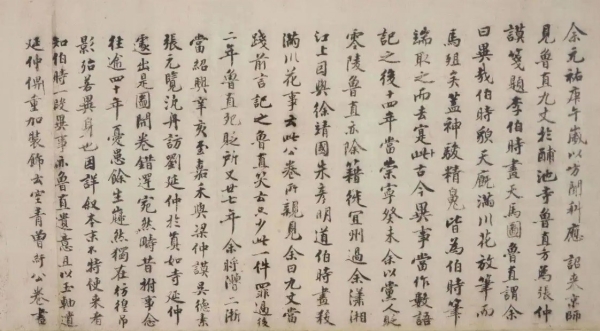 余元祐庚午歲以方聞科應詔來京師
見魯直九丈於酺池寺魯直方為張仲
謨箋題李伯時畫天馬圖魯直謂余
曰異哉伯時貌天廄滿川花放筆而
馬殂矣蓋神駿精魄皆為伯時筆
端取之而去寔古今異事當作數語
記之後十四年當崇寧癸未余以黨人貶
零陵魯直亦除籍徙宜州過余瀟湘
江上因與徐靖國朱彥明道伯時畫殺
滿川花事云此公卷所親見余曰九丈當
踐前言記之魯直笑云只少此一件罪過後
二年魯直死貶所又廿七年余將漕二浙
當紹興辛亥至嘉禾與梁仲謨吳德素
張元覽汎舟訪劉延仲於真如寺延仲
遽出是圖開卷錯愕宛然疇昔拊事念
往逾四十年憂患餘生巋然獨在彷徨弔
影殆若異身也因詳敘本末不特使來者
知伯時一段異事亦魯直遺意且以玉軸遺
延仲俾重加裝飾云空青曾紆公卷書